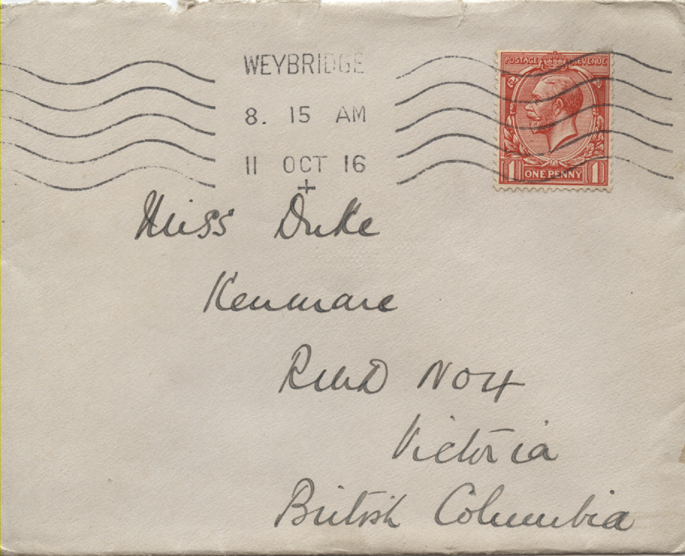 WEYBRIDGE
8. 15 AM
11 OCT 16
+
POSTAGE REVENUE
1 ONE PENNY 1
Miss Duke
Kenmare
RMD No 4
Victoria
British Columbia